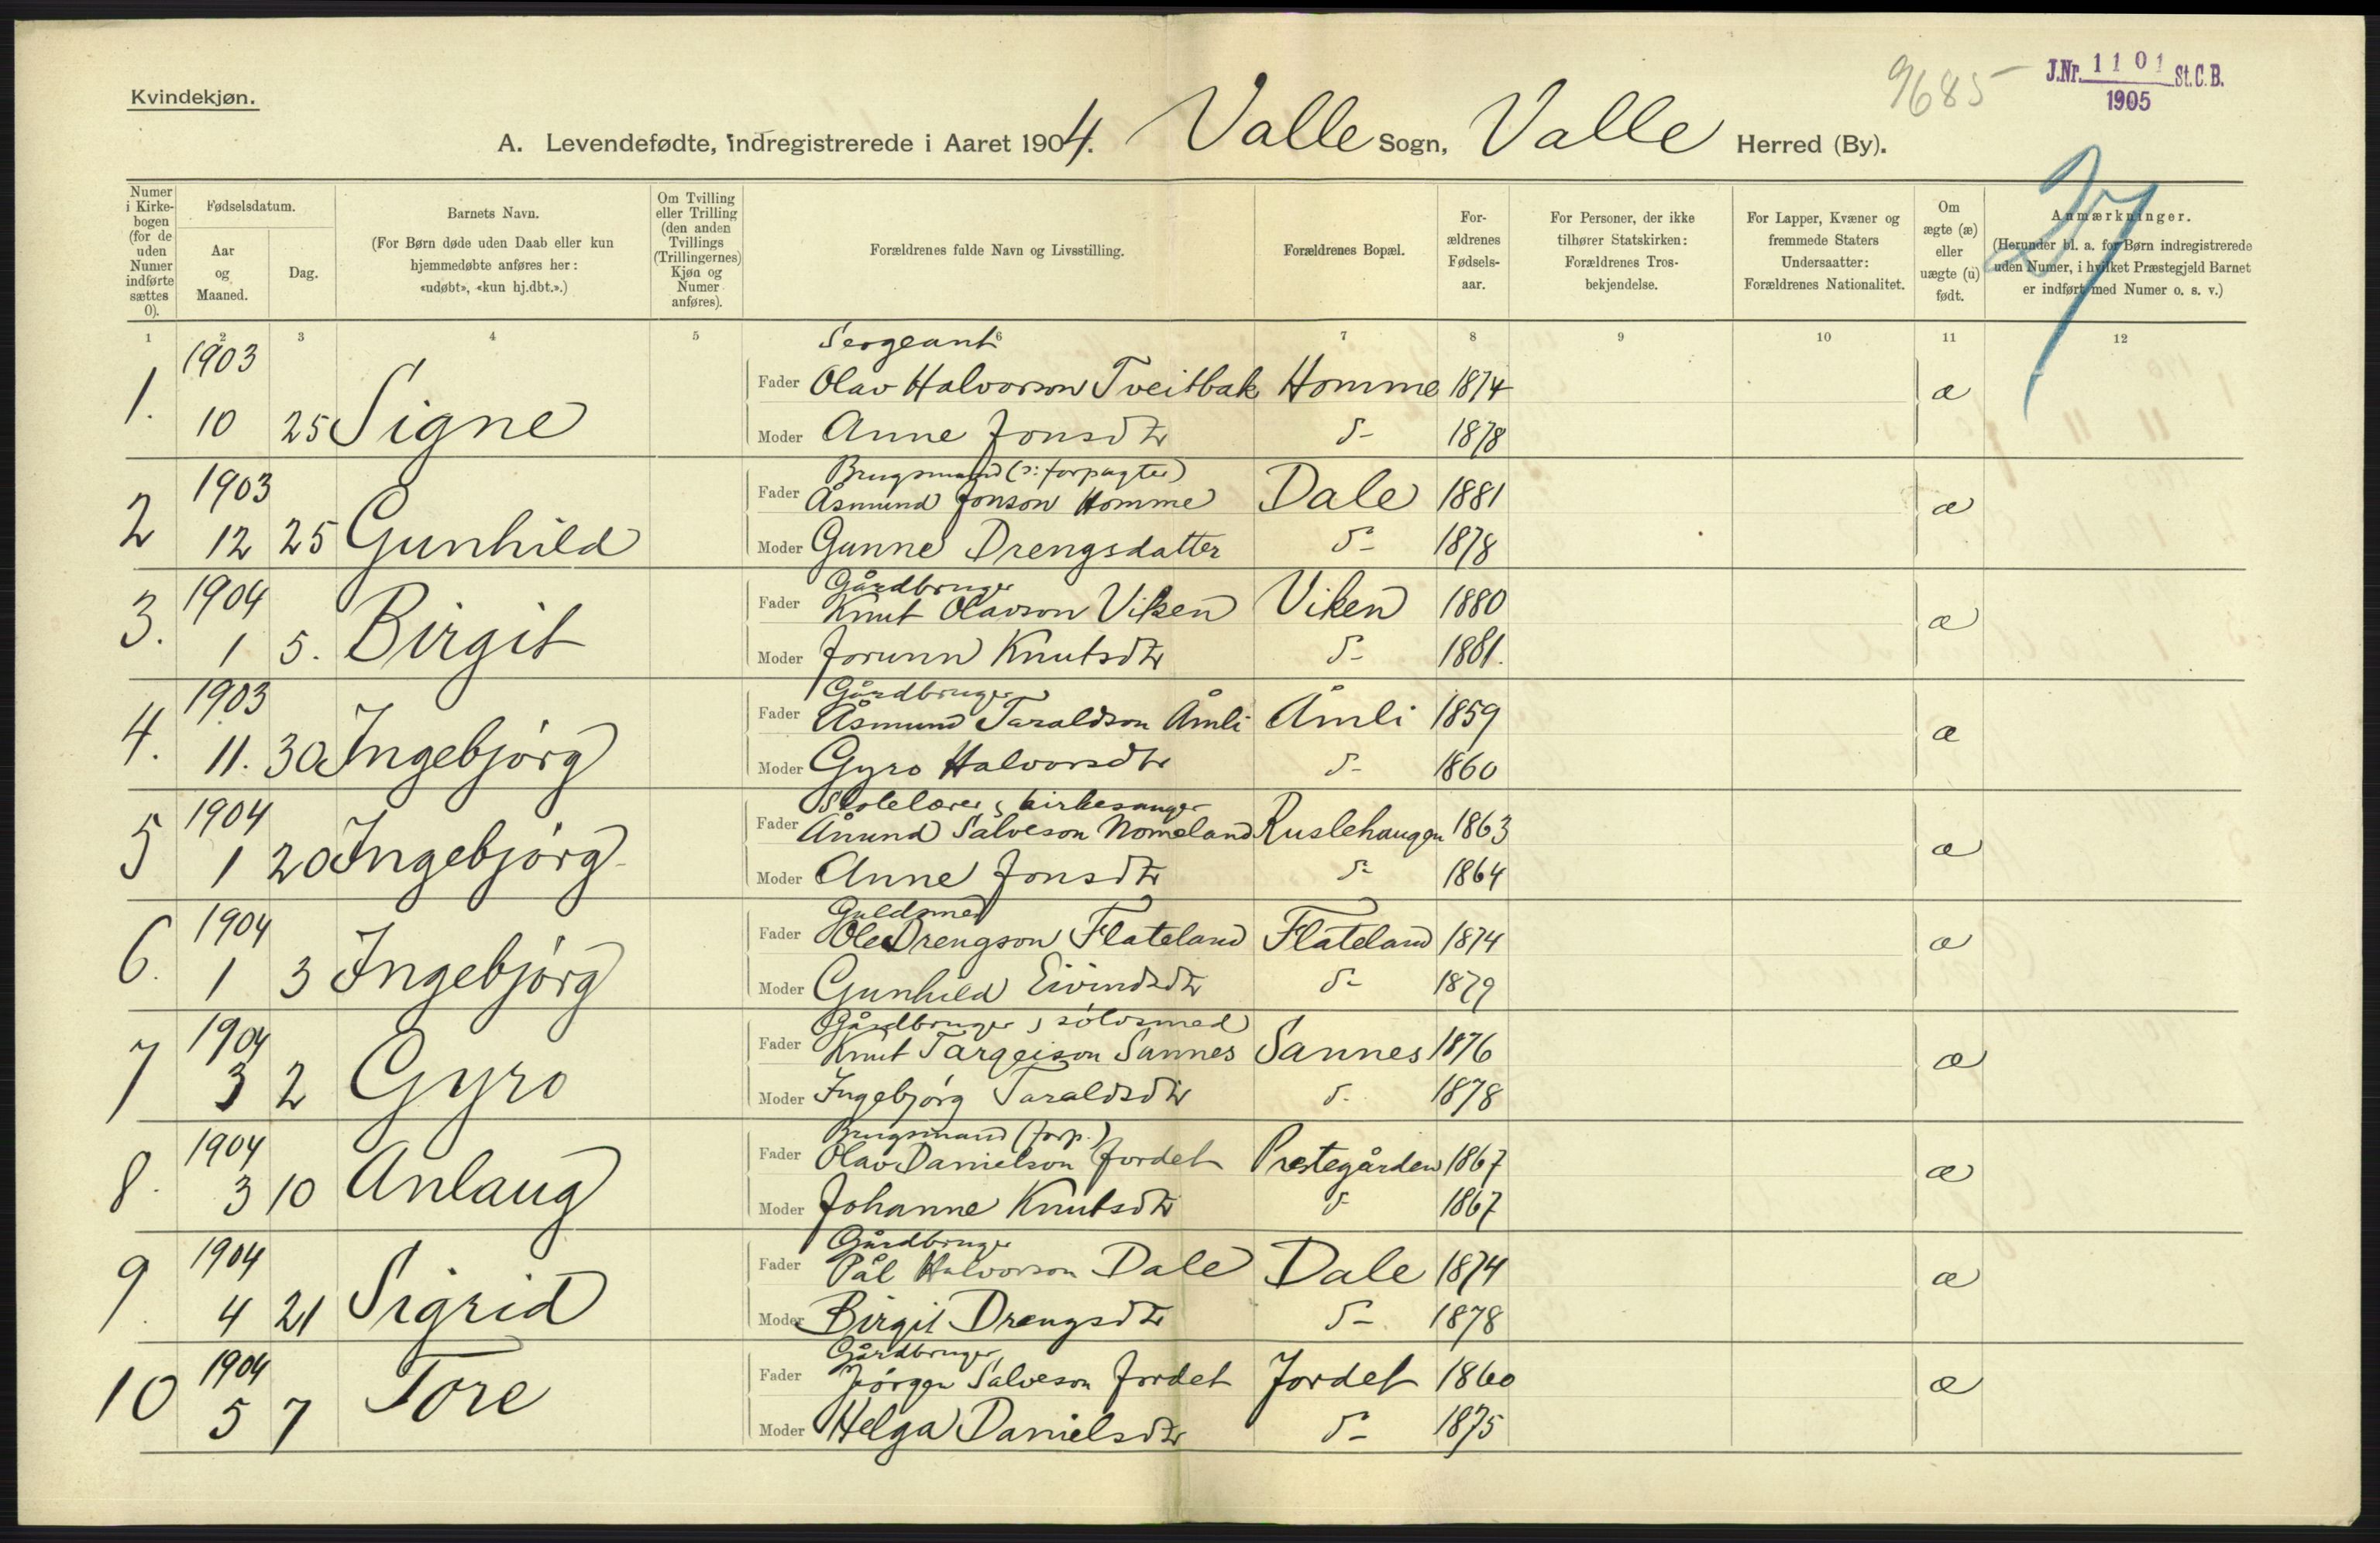 Kvindekjøn.
9685
J.Nr. 1101 St.C.B.
1905
A. Levendefødte, indregistrerede i Aaret 1904. Valle Sogn, Valle Herred (By).
27
Numer i Kirkebogen (for de uden Numer indførte sættes 0).
Fødselsdatum.
Aar og Maaned.
Dag.
Barnets Navn.
(For Børn døde uden Daab eller kun hjemmedøbte anføres her: «udøbt», «kun hj.dbt.».)
Om Tvilling eller Trilling (den anden Tvillings (Trillingernes) Kjøn og Numer anføres).
Forældrenes fulde Navn og Livsstilling.
Forældrenes Bopæl.
For-ældrenes Fødsels-aar.
For Personer, der ikke tilhører Statskirken: Forældrenes Tros-bekjendelse.
For Lapper, Kvæner og fremmede Staters Undersaatter: Forældrenes Nationalitet.
Om ægte (æ) eller uægte (u) født.
Anmærkninger.
(Herunder bl. a. for Børn indregistrerede uden Numer, i hvilket Præstegjeld Barnet er indført med Numer o. s. v.)
1 2 3 4 5 6 7 8 9 10 11 12
1903 Sergeant
1. Fader Olav Halvorson Tveitbak Homme 1874 æ
10 25 Signe Moder Anne Jonsdtr d- 1878
1903 Brugsmand (ɔ: forpagter)
2 Fader Åsmund Jonson Homme Dale 1881 æ
12 25 Gunhild Moder Gunne Drengsdatter d- 1878
1904 Gårdbruger
3. Fader Knut Olavson Viken Viken 1880 æ
1 5. Birgit Moder Jorunn Knutsdtr d- 1881.
1903 Gårdbruger
4. Fader Åsmund Taraldson Åmli Åmli 1859 æ
11. 30 Ingebjørg Moder Gyro Halvorsdtr d- 1860
1904 Skolelærer, kirkesanger
5 Fader Ånund Salveson Nomeland Ruslehaugen 1863 æ
1 20 Ingebjørg Moder Anne Jonsdtr d- 1864
1904 Guldsmed
6. Fader Ole Drengson Flateland Flateland 1874 æ
1 3 Ingebjørg Moder Gunhild Eivindsdtr d- 1879
1904 Gårdbruger, sølvsmed
7 Fader Knut Targeison Sannes Sannes 1876 æ
3 2 Gyro Moder Ingebjørg Taraldsdtr d- 1878
1904 Brugsmand (forp.)
8. Fader Olav Danielson Jordet Prestegården 1867 æ
3 10 Anlaug Moder Johanne Knutsdtr d- 1867
1904 Gårdbruger
9. Fader Pål Halvorson Dale Dale 1874 æ
4 21 Sigrid Moder Birgit Drengsdtr d- 1878
1904 Gårdbruger
10 Fader Jørgen Salveson Jordet Jordet 1860 æ
5 7 Tore Moder Helga Danielsdtr d- 1875